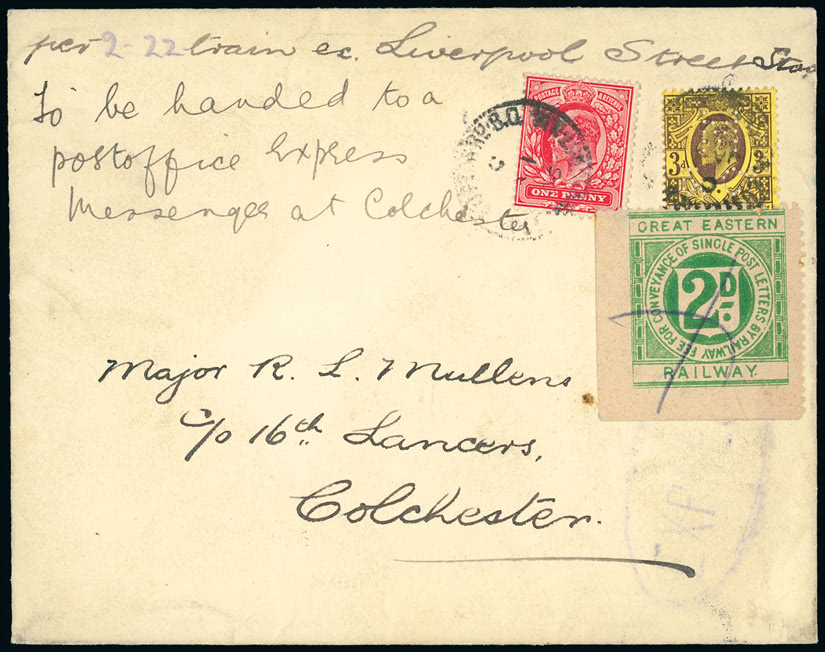 per 2-22 train ex. Liverpool Street Stan
To be handed to a
postoffice Express
Messenger at Colchester
POSTAGE & REVENUE
ONE PENNY
3d 3d
GREAT EASTERN
FEE FOR CONVEYANCE OF SINGLE POST LETTERS BY RAILWAY
2D
RAILWAY.
Major R. L. Mullens
c/o 16th Lancers,
Colchester.